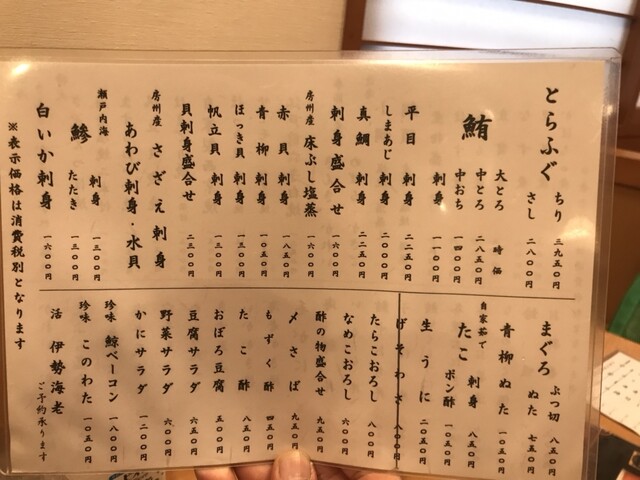 とらふぐ
ちり 三九五〇円
さし 二八〇〇円
鮪
大とろ 時価
中とろ 二八五〇円
中おち 一四〇〇円
刺身 一一〇〇円
平目 刺身 二二五〇円
しまあじ 刺身 二〇〇〇円
真鯛 刺身 二二五〇円
刺身盛合せ 一六〇〇円
房州産 床ぶし塩蒸 一六〇〇円
赤貝 刺身 一八五〇円
青柳 刺身 一〇五〇円
ほっき貝 刺身 一三〇〇円
帆立貝 刺身 一三〇〇円
貝刺身盛合せ 二三〇〇円
房州産 さざえ 刺身
あわび刺身・水貝
瀬戸内海
鰺
刺身 一三〇〇円
たたき 一三〇〇円
白いか刺身 一六〇〇円
※表示価格は消費税別となります
まぐろ
ぶつ切 八五〇円
ぬた 七五〇円
青柳ぬた 一一〇〇円
自家茹で
たこ
刺身 八五〇円
ポン酢 一〇五〇円
生うに 二〇五〇円
げそわさ 八〇〇円
たらこおろし 八〇〇円
なめこおろし 六〇〇円
酢の物盛合せ 九五〇円
〆さば 九五〇円
もずく酢 四五〇円
たこ酢 八〇〇円
おぼろ豆腐 五五〇円
豆腐サラダ 九五〇円
野菜サラダ 六〇〇円
かにサラダ 一二〇〇円
珍味 鯨ベーコン 一八〇〇円
珍味 このわた 一〇五〇円
活 伊勢海老 ご予約承ります